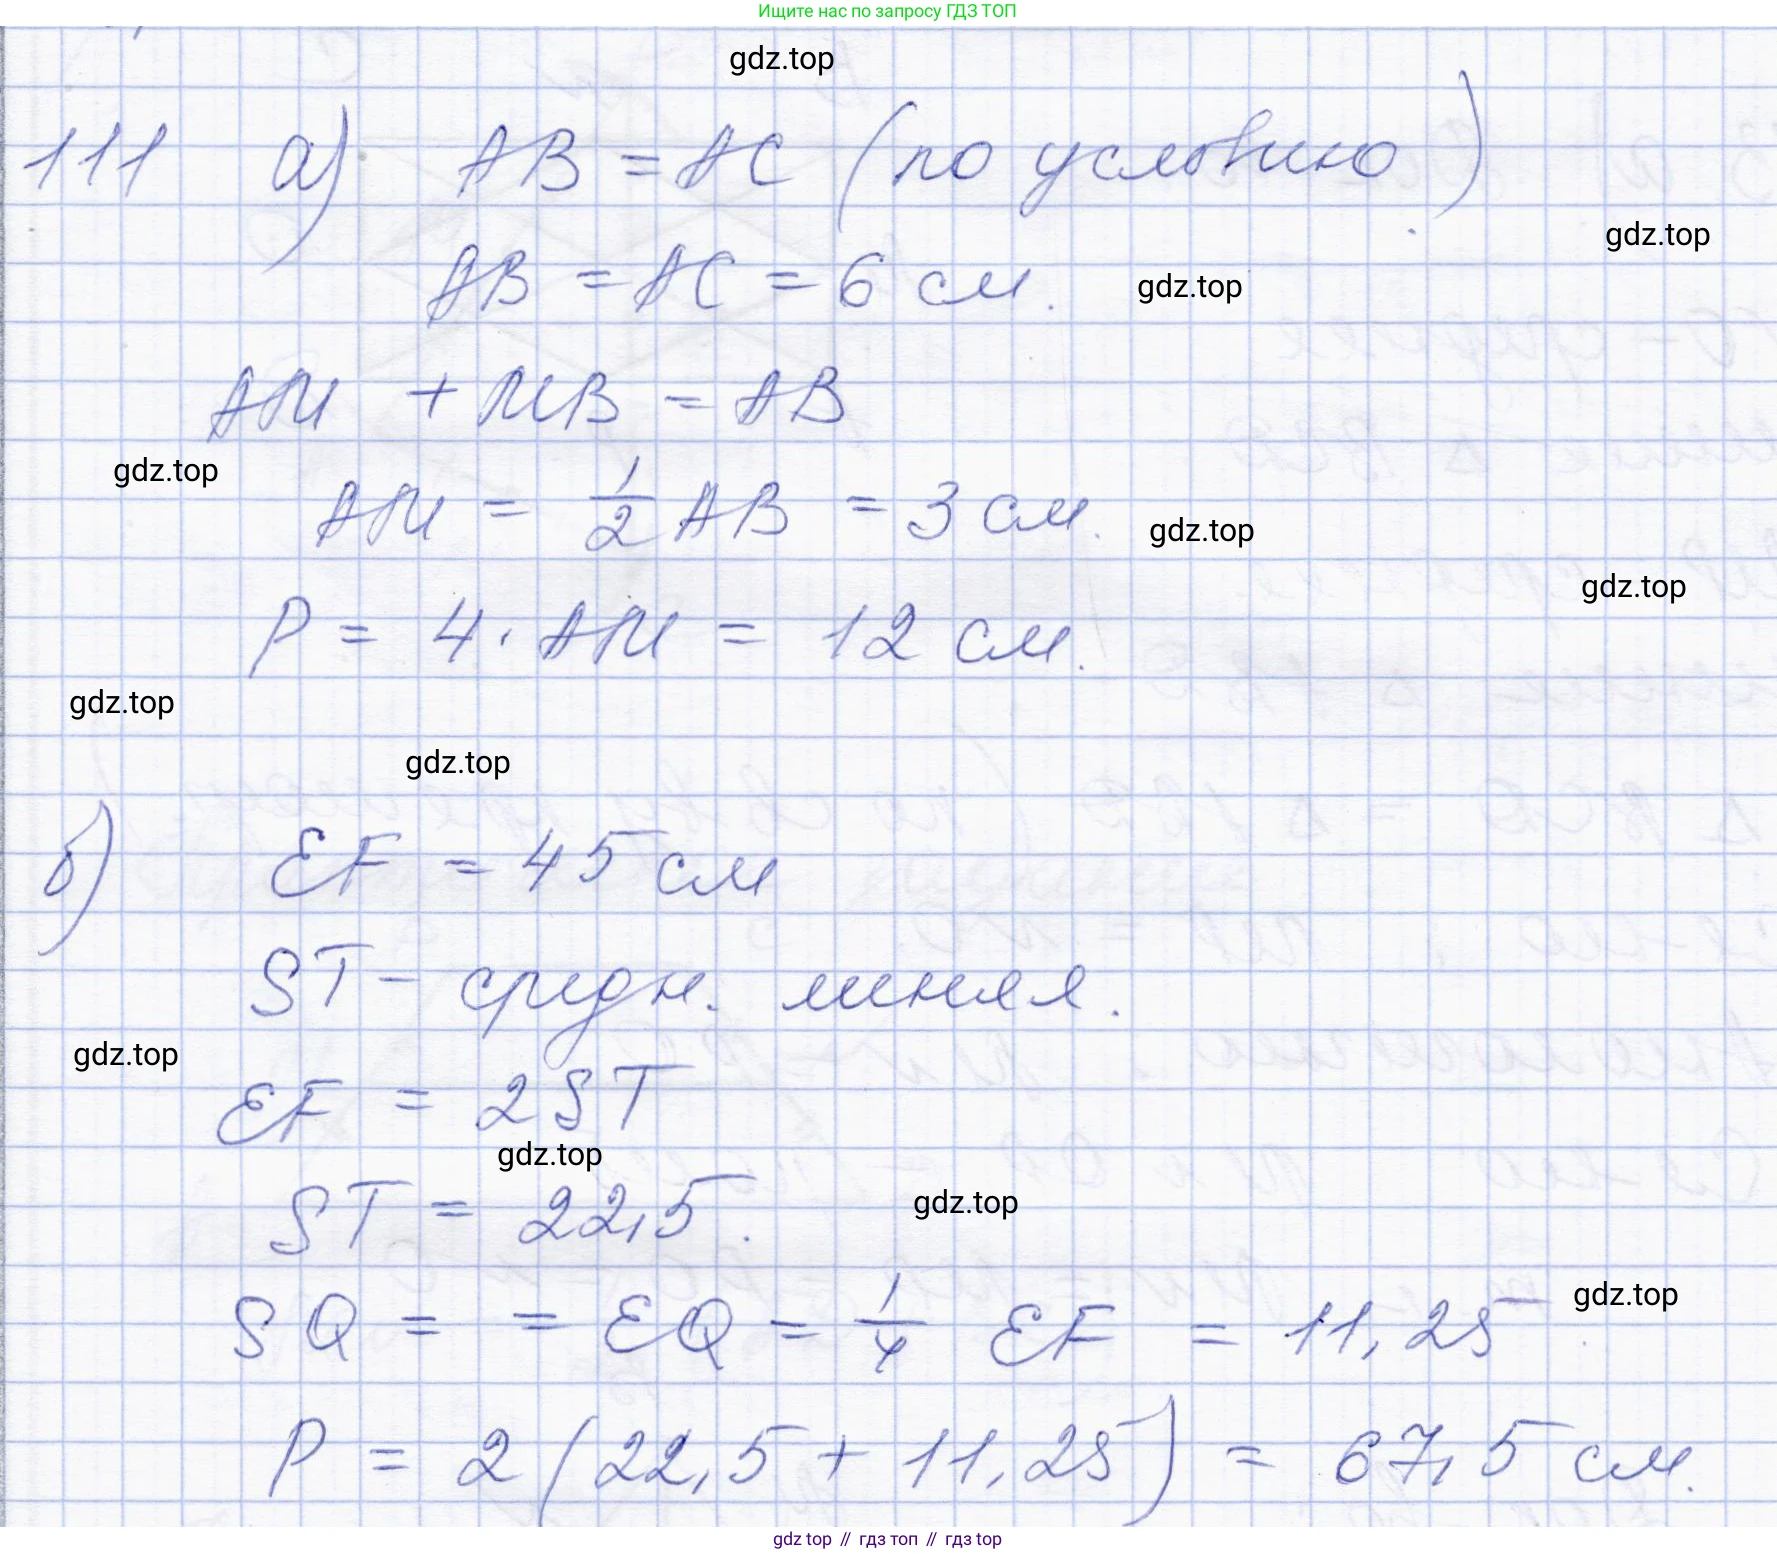 Ищите нас по запросу ГДЗ ТОП
gdz.top
111 а) AB = AC (по условию)
gdz.top
AB = AC = 6 см.
gdz.top
AM + MB = AB
gdz.top
AM = 1/2 AB = 3 см.
gdz.top
gdz.top
P = 4 · AM = 12 см.
gdz.top
gdz.top
б) EF = 45 см
ST – средн. линия.
gdz.top
EF = 2ST
gdz.top
ST = 22,5.
gdz.top
SQ = = EQ = 1/4 EF = 11,25
gdz.top
P = 2 (22,5 + 11,25) = 67,5 см.
gdz top // гдз топ // гдз top